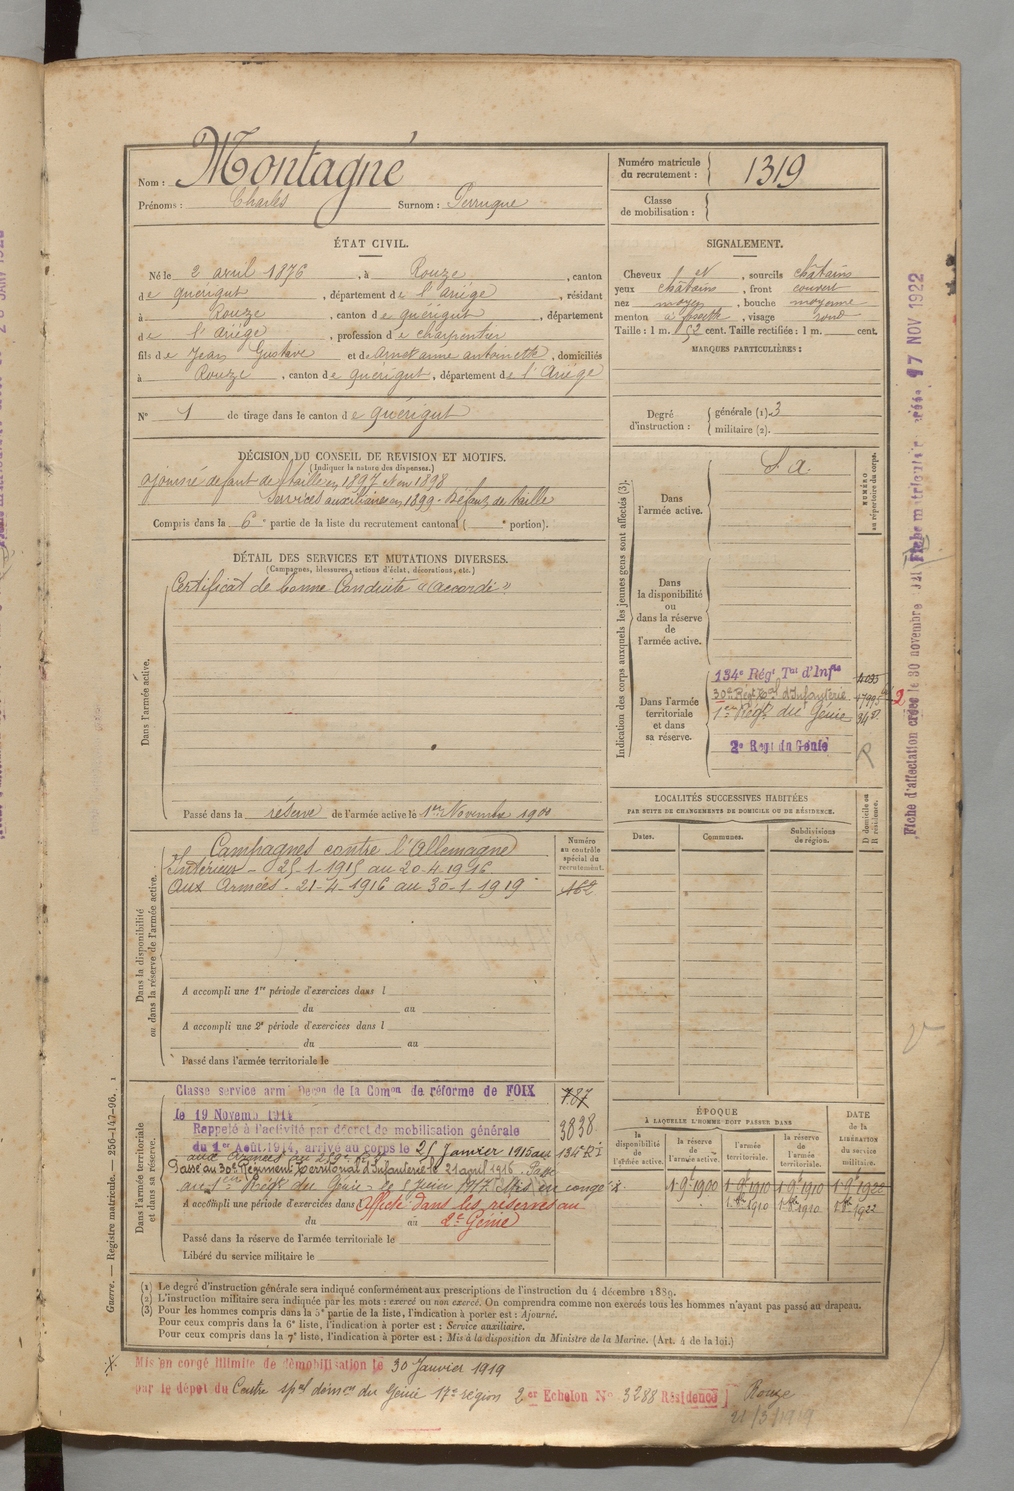 Nom : Montagné
Prénoms : Charles Surnom : Perruque
Numéro matricule du recrutement : 1319
Classe de mobilisation :
ÉTAT CIVIL.
Né le 2 avril 1876, à Rouze, canton
de Quérigut, département de l'Ariége, résidant
à Rouze, canton de Quérigut, département
de l'Ariége, profession de charpentier
fils de Jean Gustave et de anne antoinette, domiciliés
à Rouze, canton de Quérigut, département de l'Ariége
N° 1 de tirage dans le canton de Quérigut
SIGNALEMENT.
Cheveux et, sourcils châtains
yeux châtains, front couvert
nez moyen, bouche moyenne
menton à fossette, visage rond
Taille : 1 m. 52 cent. Taille rectifiée : 1 m. cent.
MARQUES PARTICULIÈRES :
Degré d'instruction : générale (1). 3
militaire (2).
DÉCISION DU CONSEIL DE REVISION ET MOTIFS.
(Indiquer la nature des dispenses.)
ajourné défaut de taille en 1897 et en 1898
Services auxiliaires en 1899 - Défaut de taille
Compris dans la 6e partie de la liste du recrutement cantonal ( e portion).
DÉTAIL DES SERVICES ET MUTATIONS DIVERSES.
(Campagnes, blessures, actions d'éclat, décorations, etc.)
Dans l'armée active.
Certificat de bonne Conduite "accordé"
Passé dans la réserve de l'armée active le 1er Novembre 1900
Indication des corps auxquels les jeunes gens sont affectés (3).
NUMÉRO au répertoire du corps.
Dans l'armée active.
S. a.
Dans la disponibilité ou dans la réserve de l'armée active.
Dans l'armée territoriale et dans sa réserve.
134e Régt Tal d'Infie
30e Regt Tal d'Infanterie
1er Regt du Génie
2e Regt du Génie
R
LOCALITÉS SUCCESSIVES HABITÉES
PAR SUITE DE CHANGEMENTS DE DOMICILE OU DE RÉSIDENCE.
Dates. Communes. Subdivisions de région. D domicile ou R résidence.
Dans la disponibilité ou dans la réserve de l'armée active.
Numéro au contrôle spécial du recrutement.
Campagnes contre l'Allemagne
Intérieur - 25-1-1915 au 20-4-1916
Aux Armées - 21-4-1916 au 30-1-1919
162
A accompli une 1re période d'exercices dans l
du au
A accompli une 2e période d'exercices dans l
du au
Passé dans l'armée territoriale le
Dans l'armée territoriale et dans sa réserve.
Classe service armé Décon de la Comon de réforme de FOIX
787
le 19 Novemb 1914
3838
Rappelé à l'activité par décret de mobilisation générale
du 1er Août 1914, arrivé au corps le 25 Janvier 1915 au 134e RI
Passé au 30e Régiment Territorial d'Infanterie le 21 avril 1916. Passé
au 1er Régt du Génie le 5 Juin 1917. Mis en congé x.
A accompli une période d'exercices dans Affecté dans les réserves au
du au 2e Génie
Passé dans la réserve de l'armée territoriale le
Libéré du service militaire le
ÉPOQUE
À LAQUELLE L'HOMME DOIT PASSER DANS
la disponibilité de l'armée active. la réserve de l'armée active. l'armée territoriale. la réserve de l'armée territoriale. DATE DE LA LIBÉRATION DU SERVICE MILITAIRE.
(1) Le degré d'instruction générale sera indiqué conformément aux prescriptions de l'instruction du 4 décembre 1889.
(2) L'instruction militaire sera indiquée par les mots : exercé ou non exercé. On comprendra comme non exercés tous les hommes n'ayant pas passé au drapeau.
(3) Pour les hommes compris dans la 5e partie de la liste, l'indication à porter est : Ajourné.
Pour ceux compris dans la 6e liste, l'indication à porter est : Service auxiliaire.
Pour ceux compris dans la 7e liste, l'indication à porter est : Mis à la disposition du Ministre de la Marine. (Art. 4 de la loi.)
x. Mis en congé illimité de démobilisation le 30 Janvier 1919
par le dépôt du Centre spal démon du Génie 17e région 2er Echelon N° 3288 Résidence Rouze
21/3/1919
Guerre. — Registre matricule. — 256-147-96.
Fiche d'affectation créée le 30 novembre
17 NOV 1922